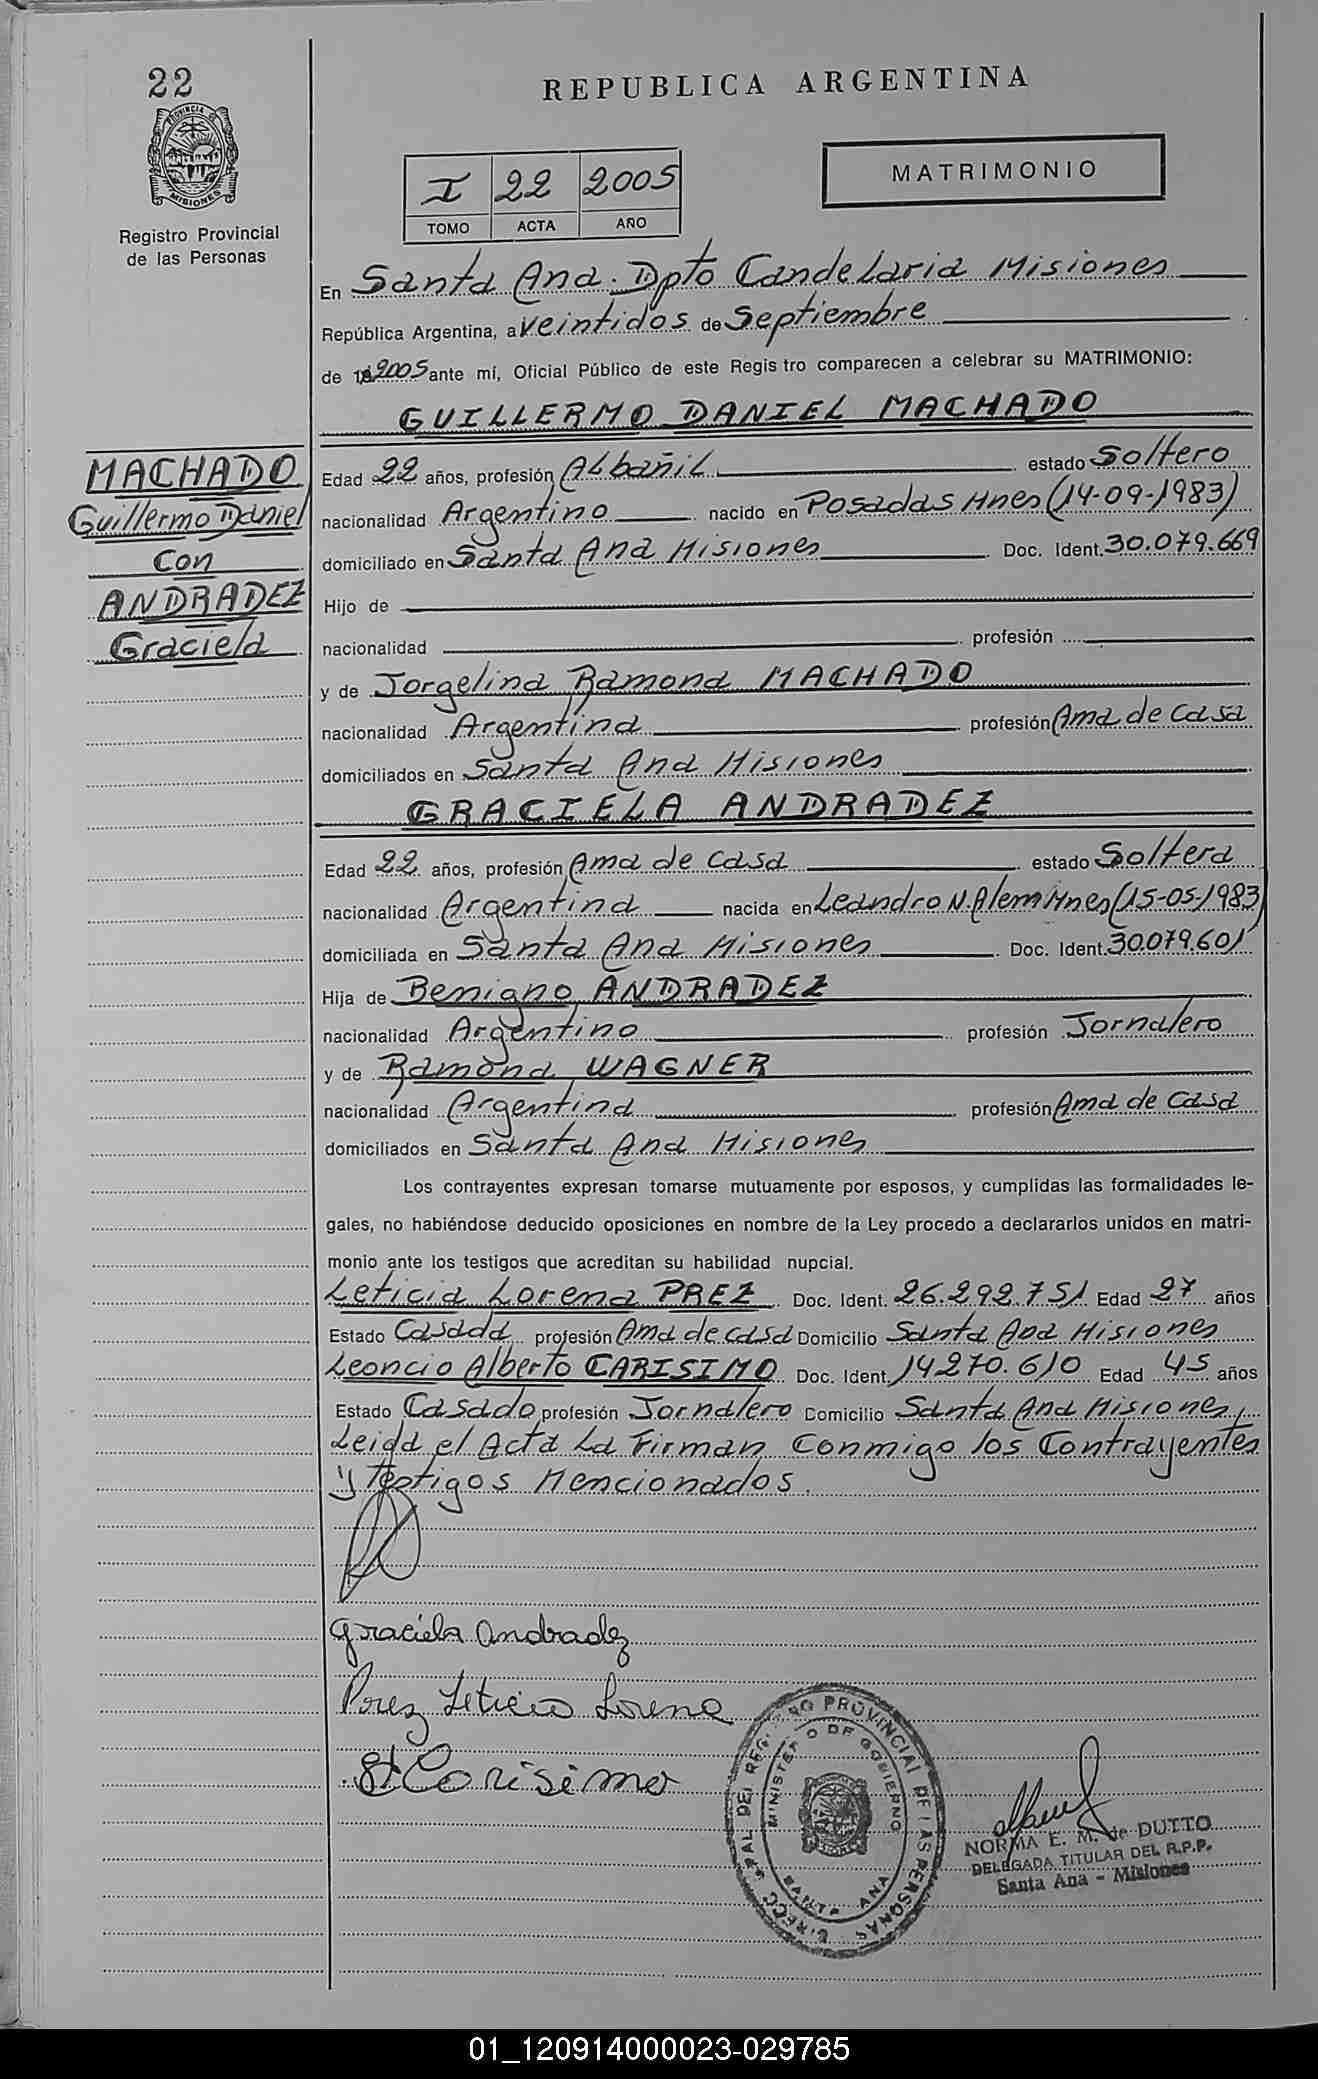 22
PROVINCIA DE
MISIONES
Registro Provincial
de las Personas
REPUBLICA ARGENTINA
I 22 2005
TOMO ACTA AÑO
MATRIMONIO
En Santa Ana. Dpto Candelaria Misiones
República Argentina, a veintidos de Septiembre
de 2005 ante mí, Oficial Público de este Regis tro comparecen a celebrar su MATRIMONIO:
GUILLERMO DANIEL MACHADO
MACHADO
Guillermo Daniel
con
ANDRADEZ
Graciela
Edad 22 años, profesión Albañil estado Soltero
nacionalidad Argentino nacido en Posadas Mnes (14-09-1983)
domiciliado en Santa Ana Misiones Doc. Ident. 30.079.669
Hijo de
nacionalidad profesión
y de Jorgelina Ramona MACHADO
nacionalidad Argentina profesión Ama de Casa
domiciliados en Santa Ana Misiones
GRACIELA ANDRADEZ
Edad 22 años, profesión Ama de Casa estado Soltera
nacionalidad Argentina nacida en Leandro N. Alem Mnes (15-05-1983)
domiciliada en Santa Ana Misiones Doc. Ident. 30.079.601
Hija de Benigno ANDRADEZ
nacionalidad Argentino profesión Jornalero
y de Ramona WAGNER
nacionalidad Argentina profesión Ama de Casa
domiciliados en Santa Ana Misiones
Los contrayentes expresan tomarse mutuamente por esposos, y cumplidas las formalidades le-
gales, no habiéndose deducido oposiciones en nombre de la Ley procedo a declararlos unidos en matri-
monio ante los testigos que acreditan su habilidad nupcial.
Leticia Lorena PREZ Doc. Ident. 26.292.751 Edad 27 años
Estado Casada profesión Ama de casa Domicilio Santa Ana Misiones
Leoncio Alberto CARISIMO Doc. Ident. 14270.610 Edad 45 años
Estado Casado profesión Jornalero Domicilio Santa Ana Misiones,
Leida el Acta La Firman Conmigo los Contrayentes
y Testigos Mencionados.
Graciela Andradez
Prez Leticia Lorena
Carisimo
REGISTRO PROVINCIAL DE LAS PERSONAS
MINISTERIO DE GOBIERNO
SANTA ANA
NORMA E. M. de DUTTO
DELEGADA TITULAR DEL R.P.P.
Santa Ana - Misiones
01_120914000023-029785